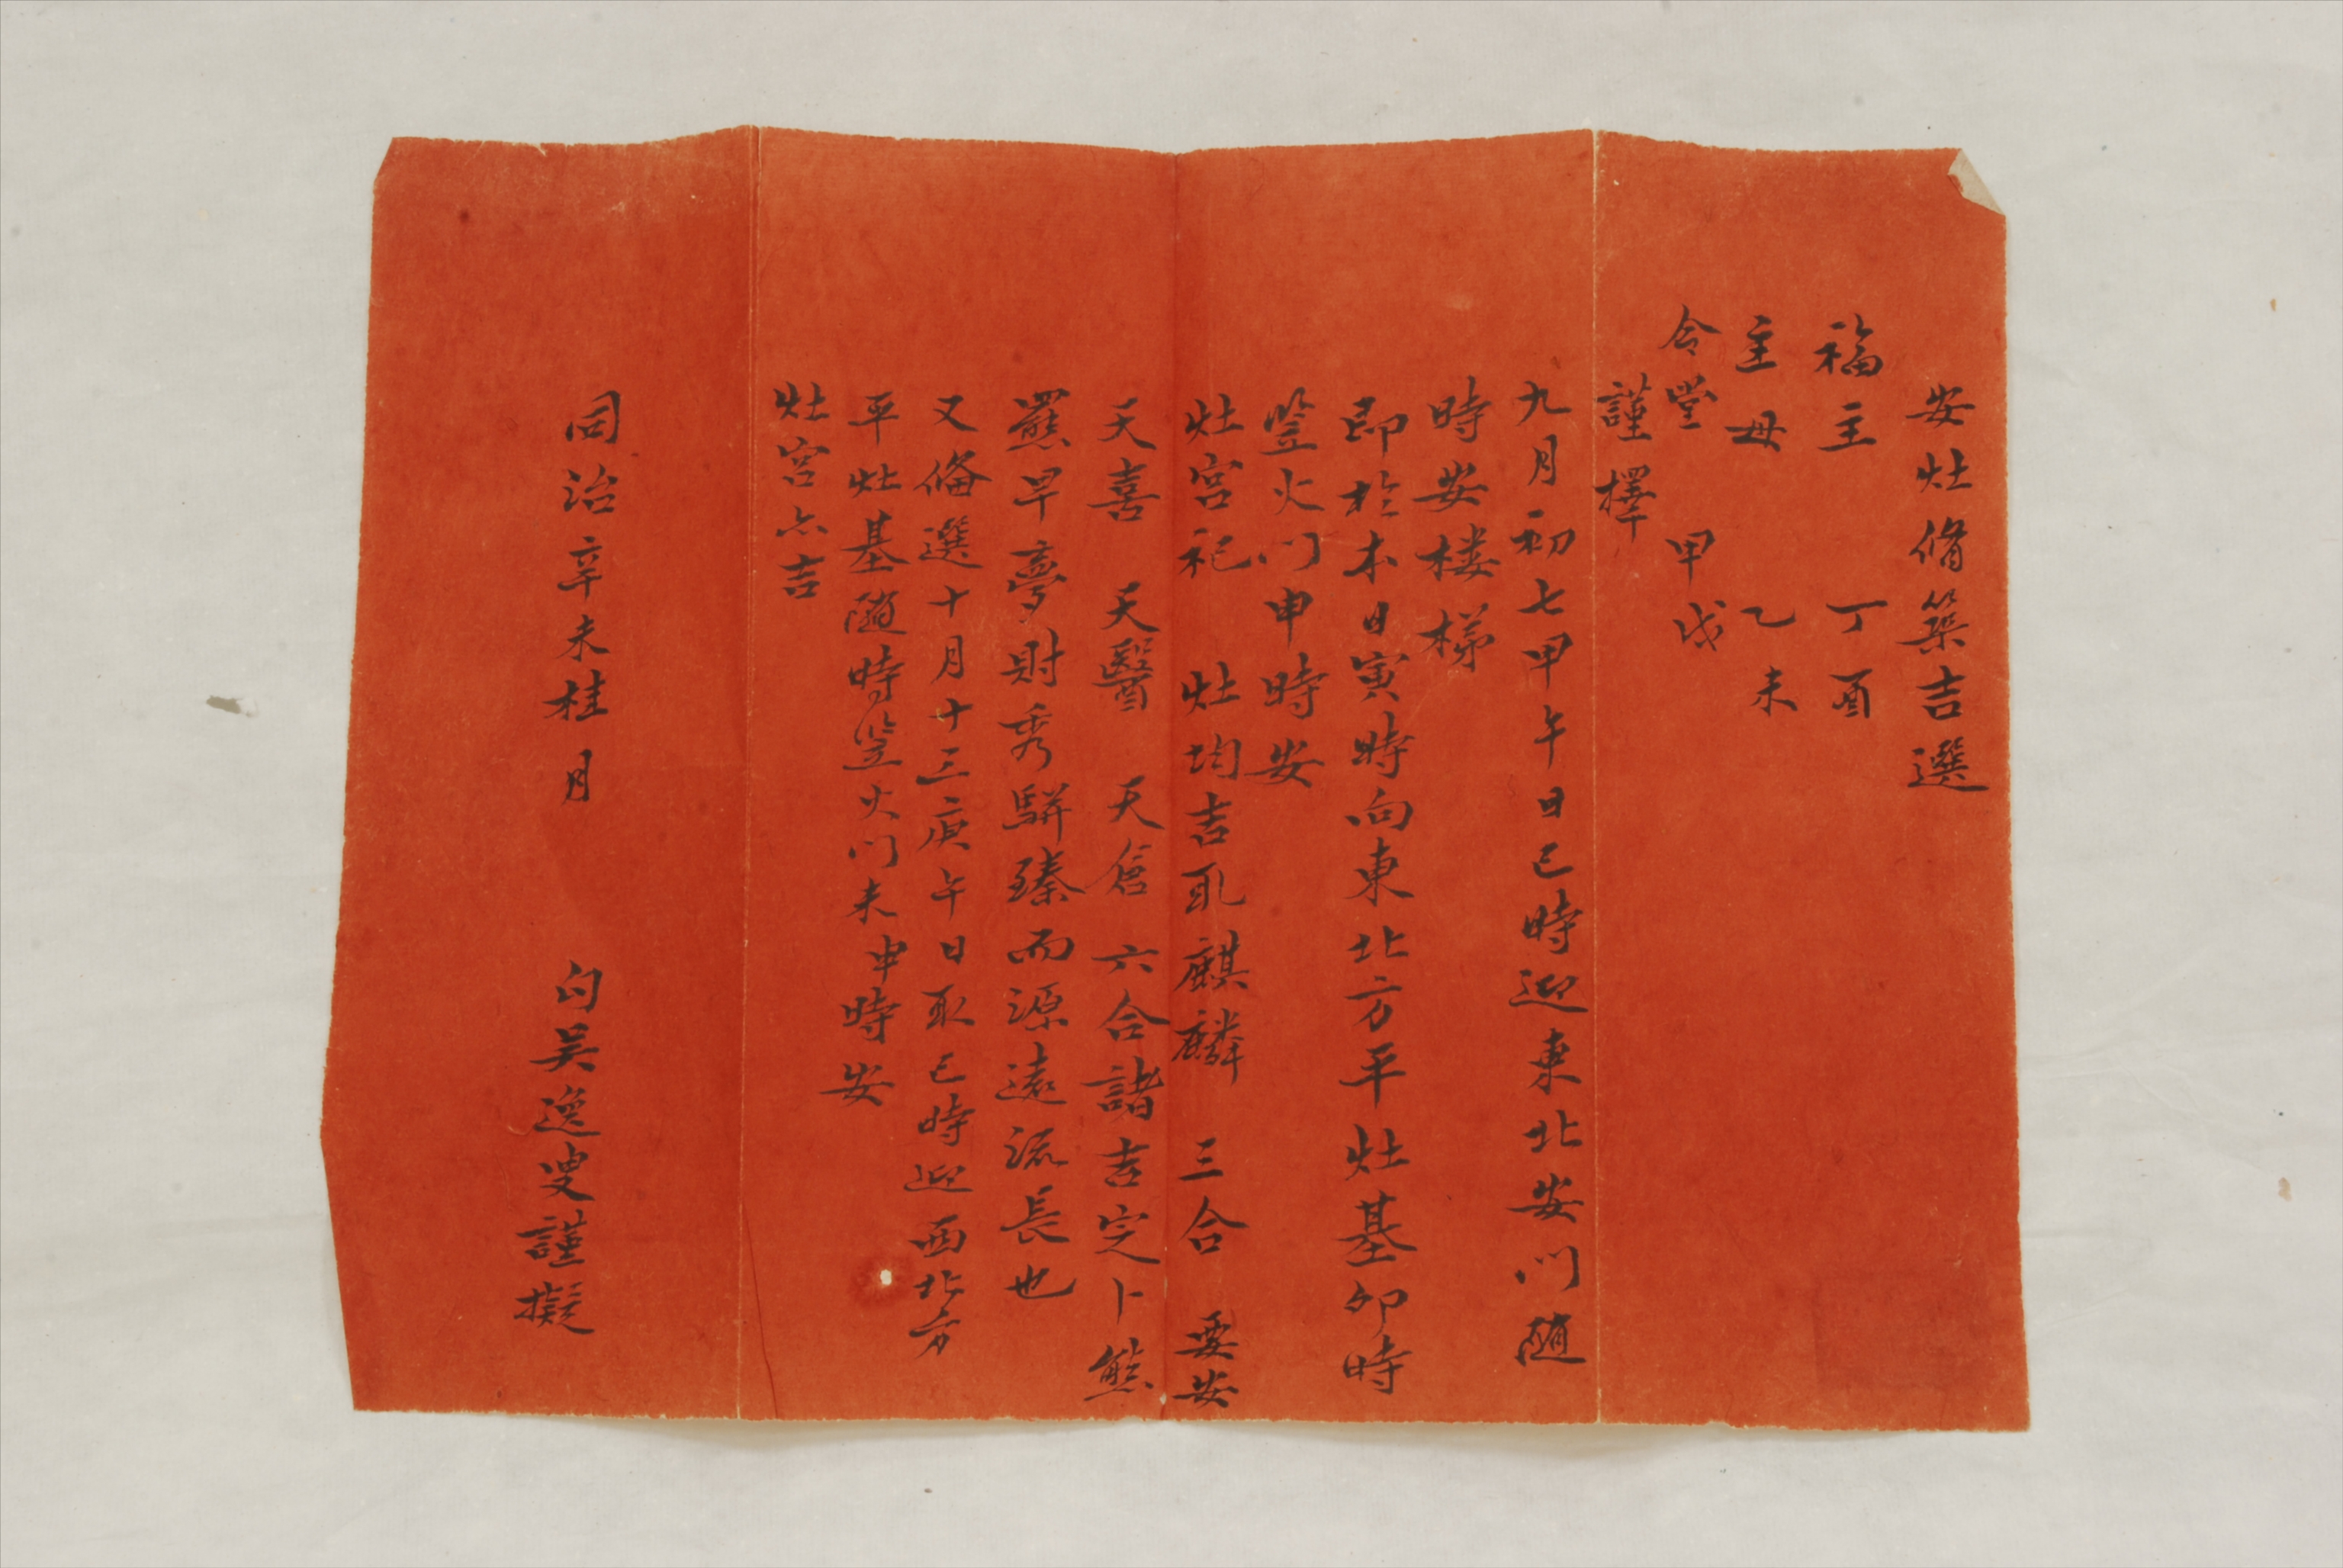 安灶脩築吉選
福主　丁酉
主母　乙未
令堂　甲戌
謹擇
九月初七甲午日巳時迎東北安門随
時安楼梯
即於本日寅時向東北方平灶基卯時
竖火门申時安
灶宫祀　灶均吉取麒麟　三合　要安
天喜　天醫　天倉　六合諸吉定卜熊
羆早夢財秀駢臻而源遠流長也
又備選十月十三庚午日取巳時迎西北方
平灶基随時竖火门未申時安
灶宫亦吉
同治辛未桂月　吳逸叟謹擬